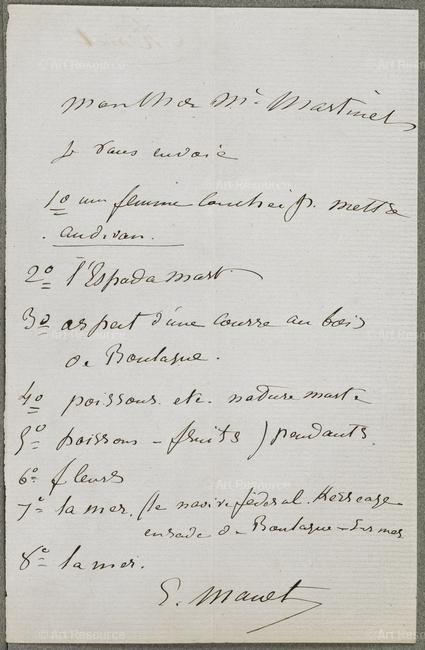 mon cher Mr Martinet
je vous envoie
1o une femme couchée
au divan.
2o l'Espada mort
3o aspect d'une course au bois
de Boulogne.
4o poissons etc. nature morte
5o poissons - fruits ) pendants.
6o fleurs
7o la mer. (le navire fédéral Kerseage
en rade de Boulogne-s-mer
8o la mer.
E. Manet
© Art Resource